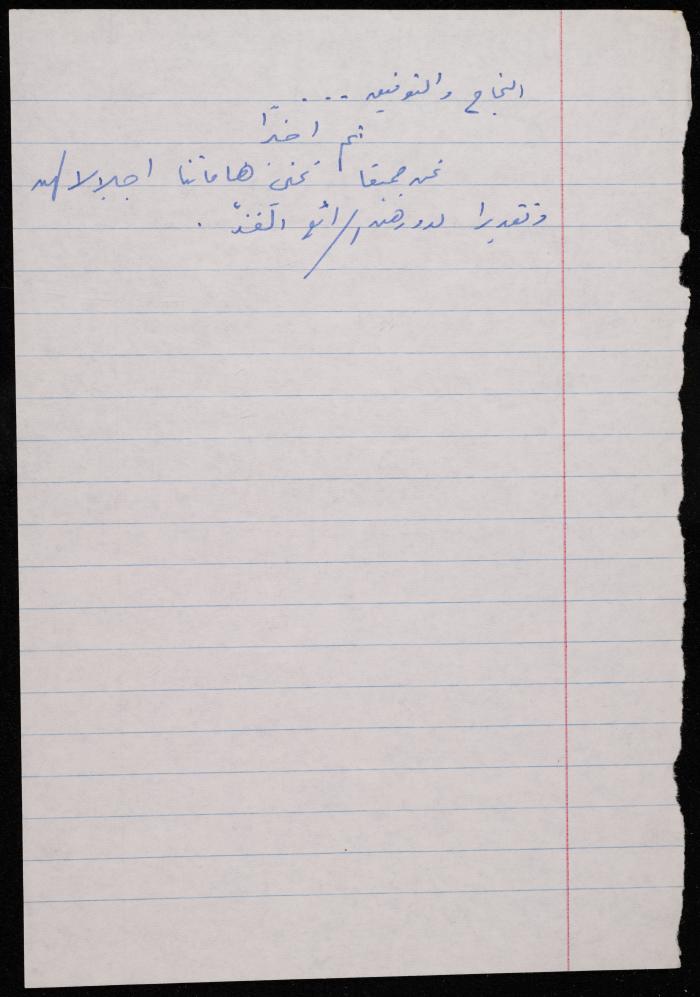 النجاح والتوفيق ...
ثم اخيرًا
نحن جميعا نحني هاماتنا اجلالا لهن
وتقديرا لدورهن الرائع الفذّ .